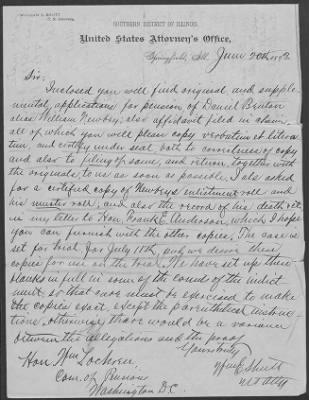 SOUTHERN DISTRICT OF ILLINOIS.
United States Attorney's Office,
Springfield, Ill. June 20th 1893
Sir:
Inclosed you will find original and supple
mental, applications for pension of Daniel Benton
alias William Newbey; also affidavit filed in claim,
all of which you will please copy verbatim et litera
tim, and certify under seal both to correctness of copy
and also to filing of same, and return, together with
the originals, to us as soon as possible. I also asked
for a certified copy of Newbeys enlistment roll and
his muster roll, and also the record of his death etc
in my letter to Hon. Frank E. Anderson, which I hope
you can furnish with the other copies. The case is
set for trial for July 11th, and we desire these
copies for use on the trial. We have set up these
blanks in full in some of the counts of the indict
ment, so that care must be exercised to make
the copies exact, except the parenthetical instruc
tions, otherwise there would be a variance
between the allegations and the proof.
Yours truly
Hon Wm Lochren
Wm E Shutt
Com. of Pensions
US Atty
Washington D.C.